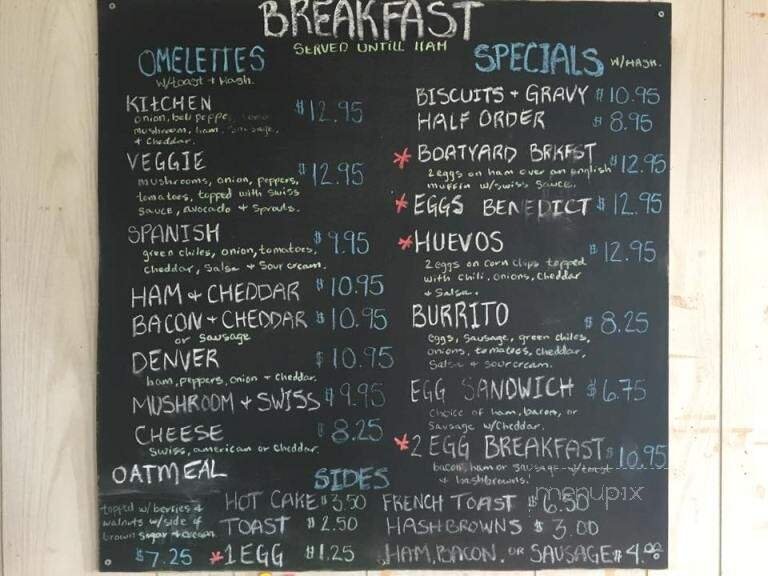 BREAKFAST
SERVED UNTILL 11AM
OMELETTES
W/toast + Hash.
KITCHEN $12.95
onion, bell pepper,
mushroom, ham, sausage,
+ Cheddar.
VEGGIE $12.95
mushrooms, onion, peppers,
tomatoes, topped with swiss
sauce, avocado + Sprouts.
SPANISH $9.95
green chiles, onion, tomatoes,
cheddar, Salsa + Sour cream.
HAM + CHEDDAR $10.95
BACON + CHEDDAR $10.95
or Sausage
DENVER $10.95
ham, peppers, onion + Cheddar.
MUSHROOM + SWISS $9.95
CHEESE $8.25
Swiss, american or Cheddar.
OATMEAL
topped w/ berries +
walnuts w/ side of
brown sugar + cream
$7.25
SPECIALS W/HASH.
BISCUITS + GRAVY $10.95
HALF ORDER $8.95
* BOATYARD BRKFST $12.95
2 eggs on ham over an english
muffin w/swiss sauce.
* EGGS BENEDICT $12.95
* HUEVOS $12.95
2 eggs on corn chips topped
with chili, onions, Cheddar
+ Salsa.
BURRITO $8.25
eggs, Sausage, green chiles,
onions, tomatoes, cheddar,
Salsa + sourcream.
EGG SANDWICH $6.75
choice of ham, bacon, or
Sausage w/Cheddar.
* 2 EGG BREAKFAST $10.95
bacon, ham or sausage w/toast
+ hashbrowns.
SIDES
HOT CAKE $3.50 FRENCH TOAST $6.50
TOAST $2.50 HASHBROWNS $3.00
* 1 EGG $1.25 HAM, BACON, OR SAUSAGE $4.00
menupix